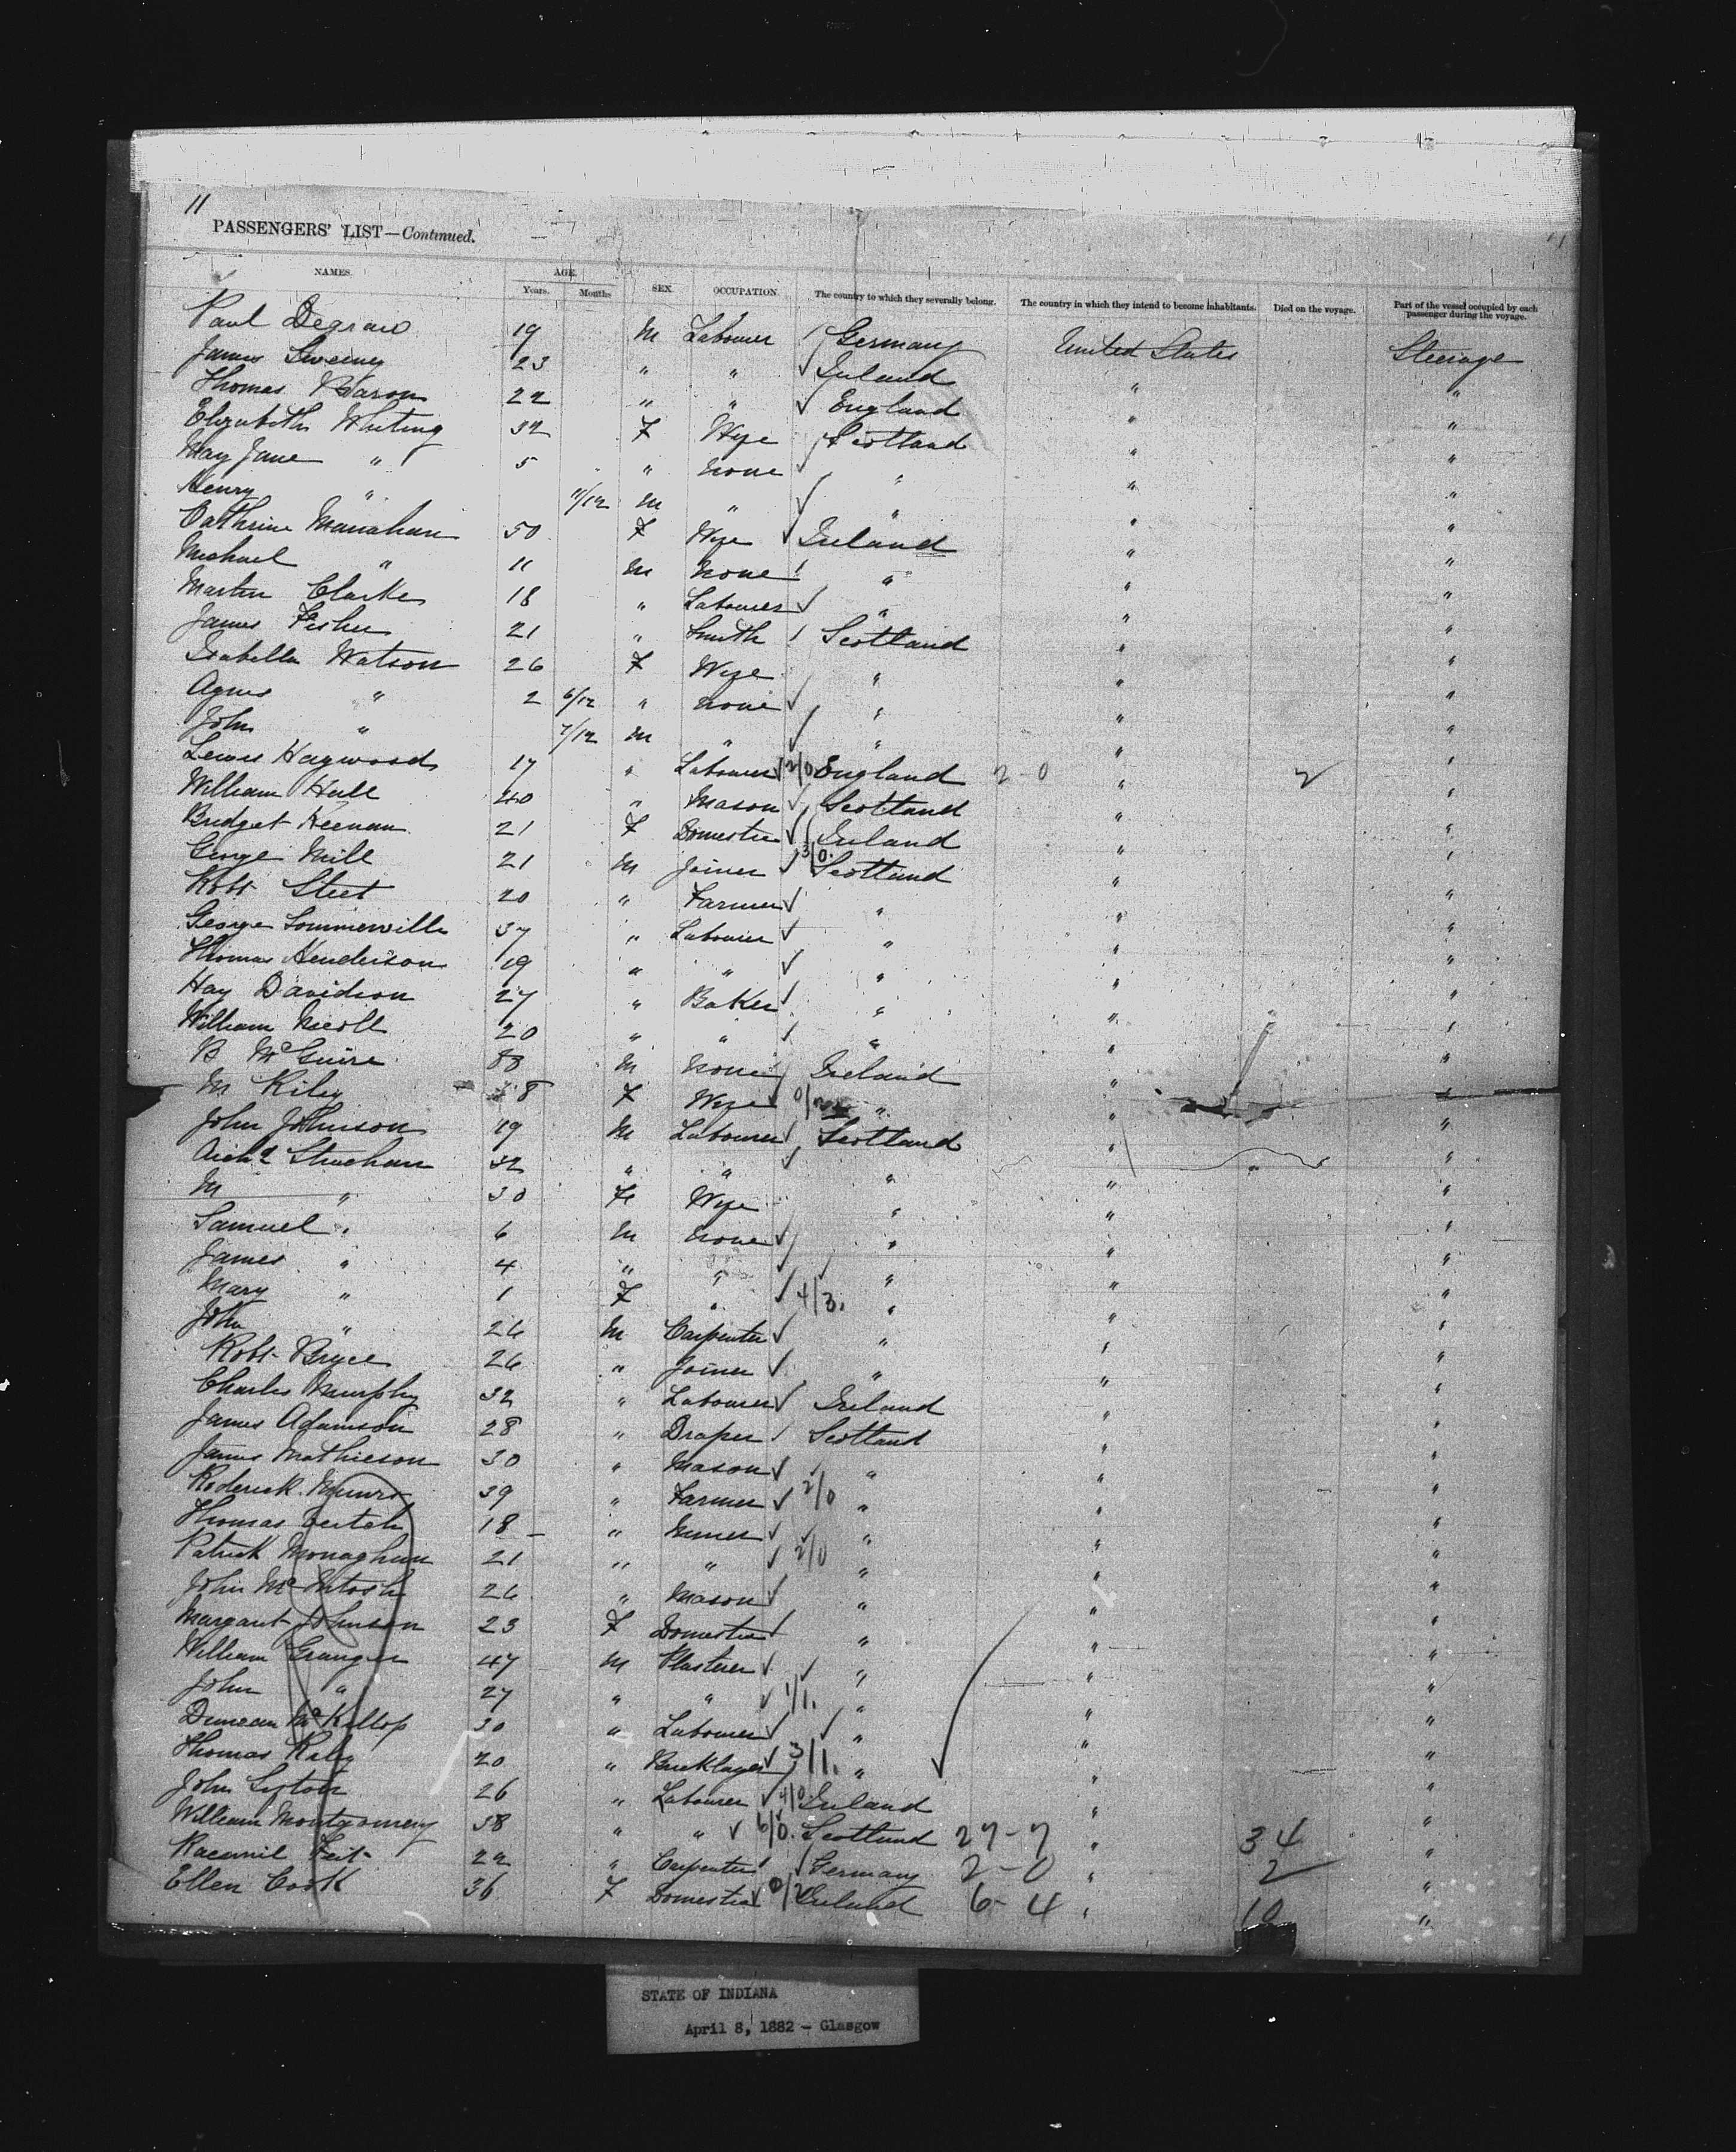 11
PASSENGERS' LIST—Continued.
NAMES. AGE. Years. Months SEX. OCCUPATION. The country to which they severally belong. The country in which they intend to become inhabitants. Died on the voyage. Part of the vessel occupied by each passenger during the voyage.
Paul Degraw 19 M Labourer Germany United States Steerage
James Sweeney 23 " " Ireland " "
Thomas 22 " " England " "
Elizabeth Whiting 32 F Wife Scotland " "
May Jane " 5 " None " " "
Henry " 11/12 M " " " "
Cathrine Manahan 50 F Wife Ireland " "
Michael " 11 M None " " "
Martin Clarke 18 " Labourer " " "
James Fisher 21 " Smith Scotland " "
Isabella Watson 26 F Wife " " "
Agnes " 2 6/12 " None " " "
John " 7/12 M " " " "
Lewis Haywood 17 " Labourer 2/0 England 2-0 " 2 "
William Hull 40 " Mason Scotland " "
Bridget Keenan 21 F Domestic Ireland " "
George Mill 21 M Joiner 3/0. Scotland " "
Robt Steet 20 " Farmer " " "
George Sommerville 37 " Labourer " " "
Thomas Henderson 19 " " " " "
Hay Davidson 27 " Baker " " "
William Nicoll 20 " " " " "
B McGuire 88 M None Ireland " "
M Riley 8 F Wife " " "
John Johnson 19 M Labourer Scotland " "
Archd Strachan 32 " " " " "
M " 30 F Wife " " "
Samuel " 6 M None " " "
James " 4 " " " " "
Mary " 1 F " 4/3. " " "
John " 26 M Carpenter " " "
Robt Bryce 26 " Joiner " " "
Charles Murphy 32 " Labourer Ireland " "
James Adamson 28 " Draper Scotland " "
James Mathieson 30 " Mason " " "
Roderick Munro 39 " Farmer 2/0 " " "
Thomas Veitch 18 " Miner " " "
Patrick Monaghan 21 " " 2/0 " " "
John McIntosh 26 " Mason " " "
Margaret Johnson 23 F Domestic " " "
William Granger 47 M Plasterer " " "
John " 27 " " 1/1. " " "
Duncan McKillop 30 " Labourer " " "
Thomas Raby 20 " Bricklayer 3/1. " " "
John 26 " Labourer 4/0 Ireland " "
William Montgomery 38 " " 6/0. Scotland 27-7 " 34 "
Feit 22 " Carpenter Germany 2-0 " 2 "
Ellen Cook 36 F Domestic 0/2 Ireland 6-4 " 10 "
STATE OF INDIANA
April 8, 1882 - Glasgow